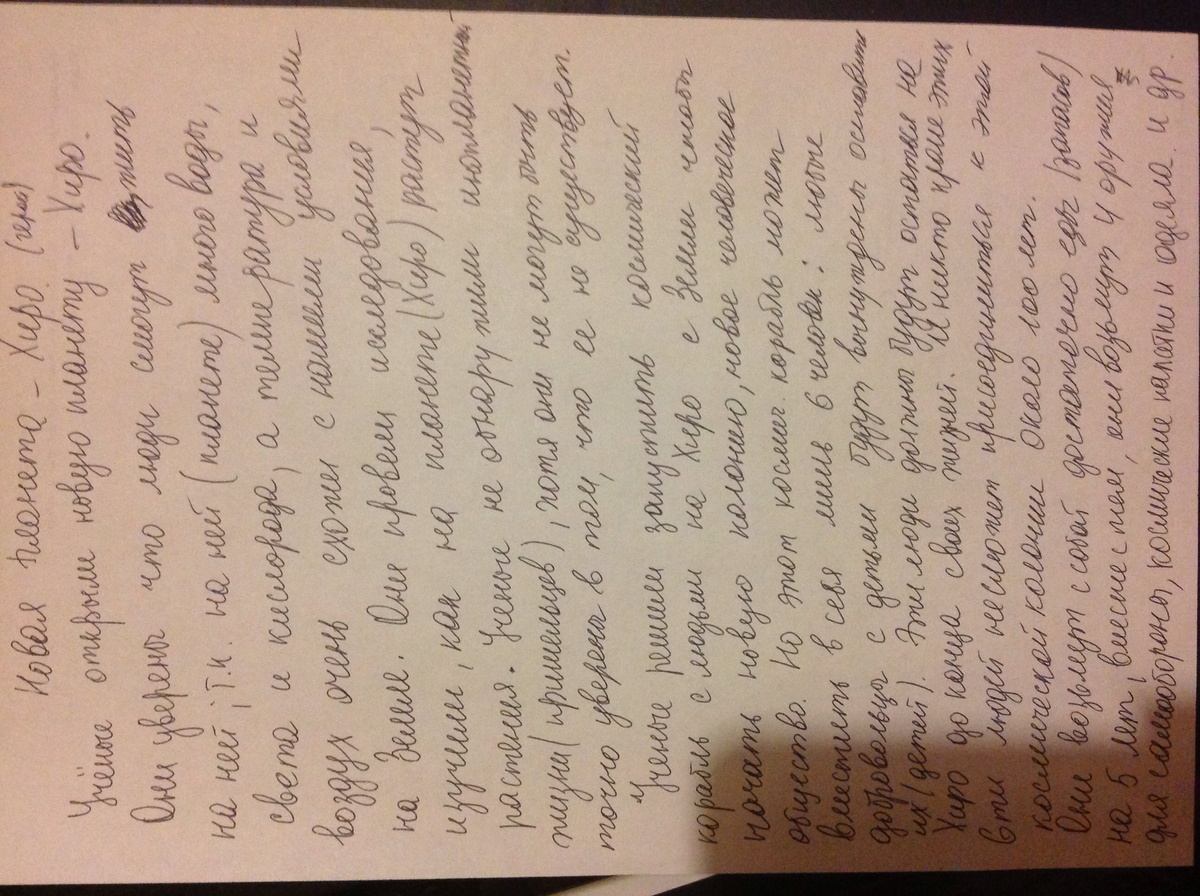 Новая планета – Хиро. (гений)
Учёные открыли новую планету – Хиро.
Они уверены что люди смогут жить
на ней, т.к. на ней (планете) много воды,
света и кислорода, а температура и
воздух очень схожи с нашими условиями
на Земле. Они провели исследования,
изучили, как на планете (Хиро) растут
растения. Ученые не обнаружили инопланетной
жизни (пришельцев), хотя они не могут быть
точно уверены в том, что ее не существует.
Ученые решили запустить космический
корабль с людьми на Хиро с Земли чтобы
начать новую колонию, новое человеческое
общество. Но этот космич. корабль может
вместить в себя лишь 6 человек: любые
добровольцы с детьми будут вынуждены оставить
их (детей). Эти люди должны будут остаться на
Хиро до конца своих жизней. И никто кроме этих
6ти людей не сможет присоединиться к этой
космической колонии около 100 лет.
Они возьмут с собой достаточно еды (запасов)
на 5 лет, вместе с тем, они возьмут 4 оружия
для самообороны, космические напитки и одеяла. и др.